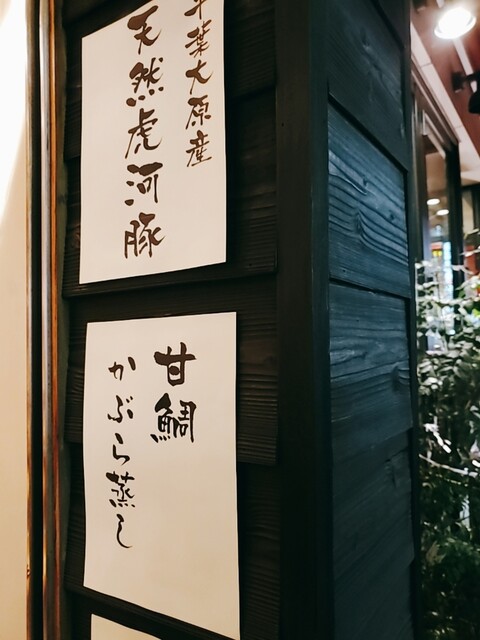 千葉大原産
天然虎河豚
甘鯛
かぶら蒸し